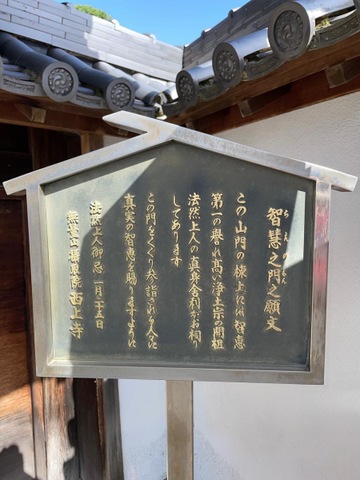 智慧之門之願文
ちえのもん
この山門の棟上には智恵
第一の誉れ高い浄土宗の開祖
法然上人の真身舎利がお祠
してあります
この門をくぐり参詣される人々に
真実の智恵を賜りますように
法然上人御忌 一月二十五日
西上寺